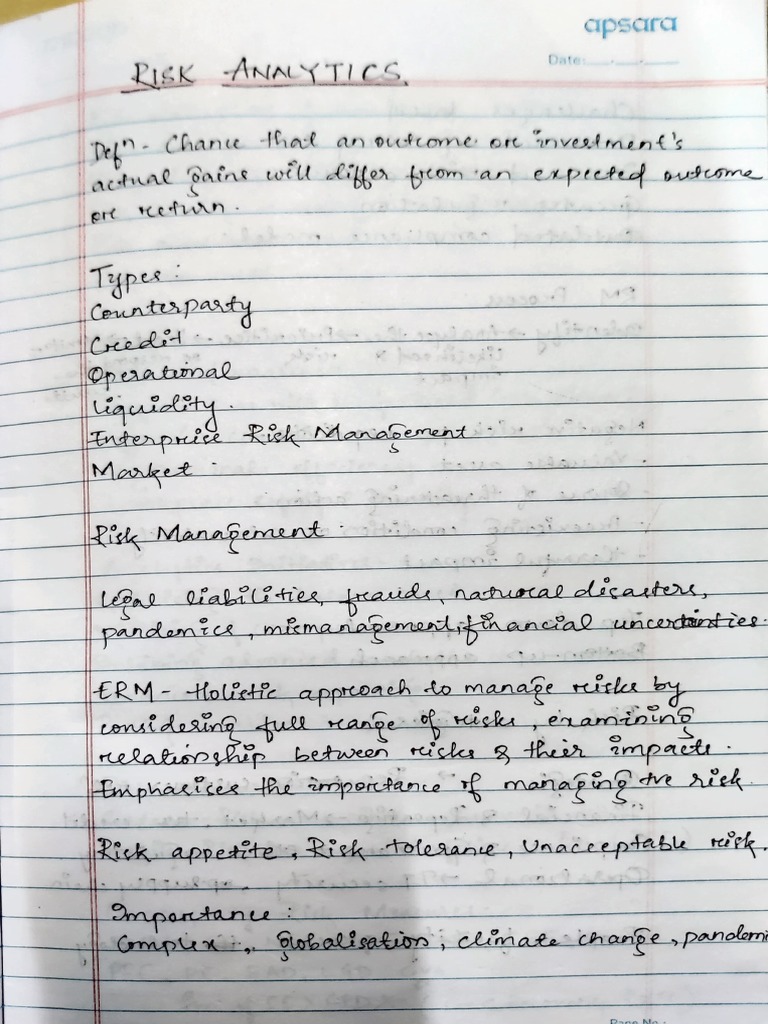 apsara
Date:
RISK ANALYTICS.
Defⁿ - Chance that an outcome or investment's
actual gains will differ from an expected outcome
or return.
Types :
Counterparty
Credit
Operational
Liquidity.
Enterprise Risk Management
Market
Risk Management
Legal liabilities, frauds, natural disasters,
pandemics, mismanagement, financial uncertainties.
ERM - Holistic approach to manage risks by
considering full range of risks, examining
relationship between risks & their impacts.
Emphasises the importance of managing +ve risk.
Risk appetite, Risk tolerance, Unacceptable risk.
Importance :
Complex, globalisation, climate change, pandemi
Page No.: